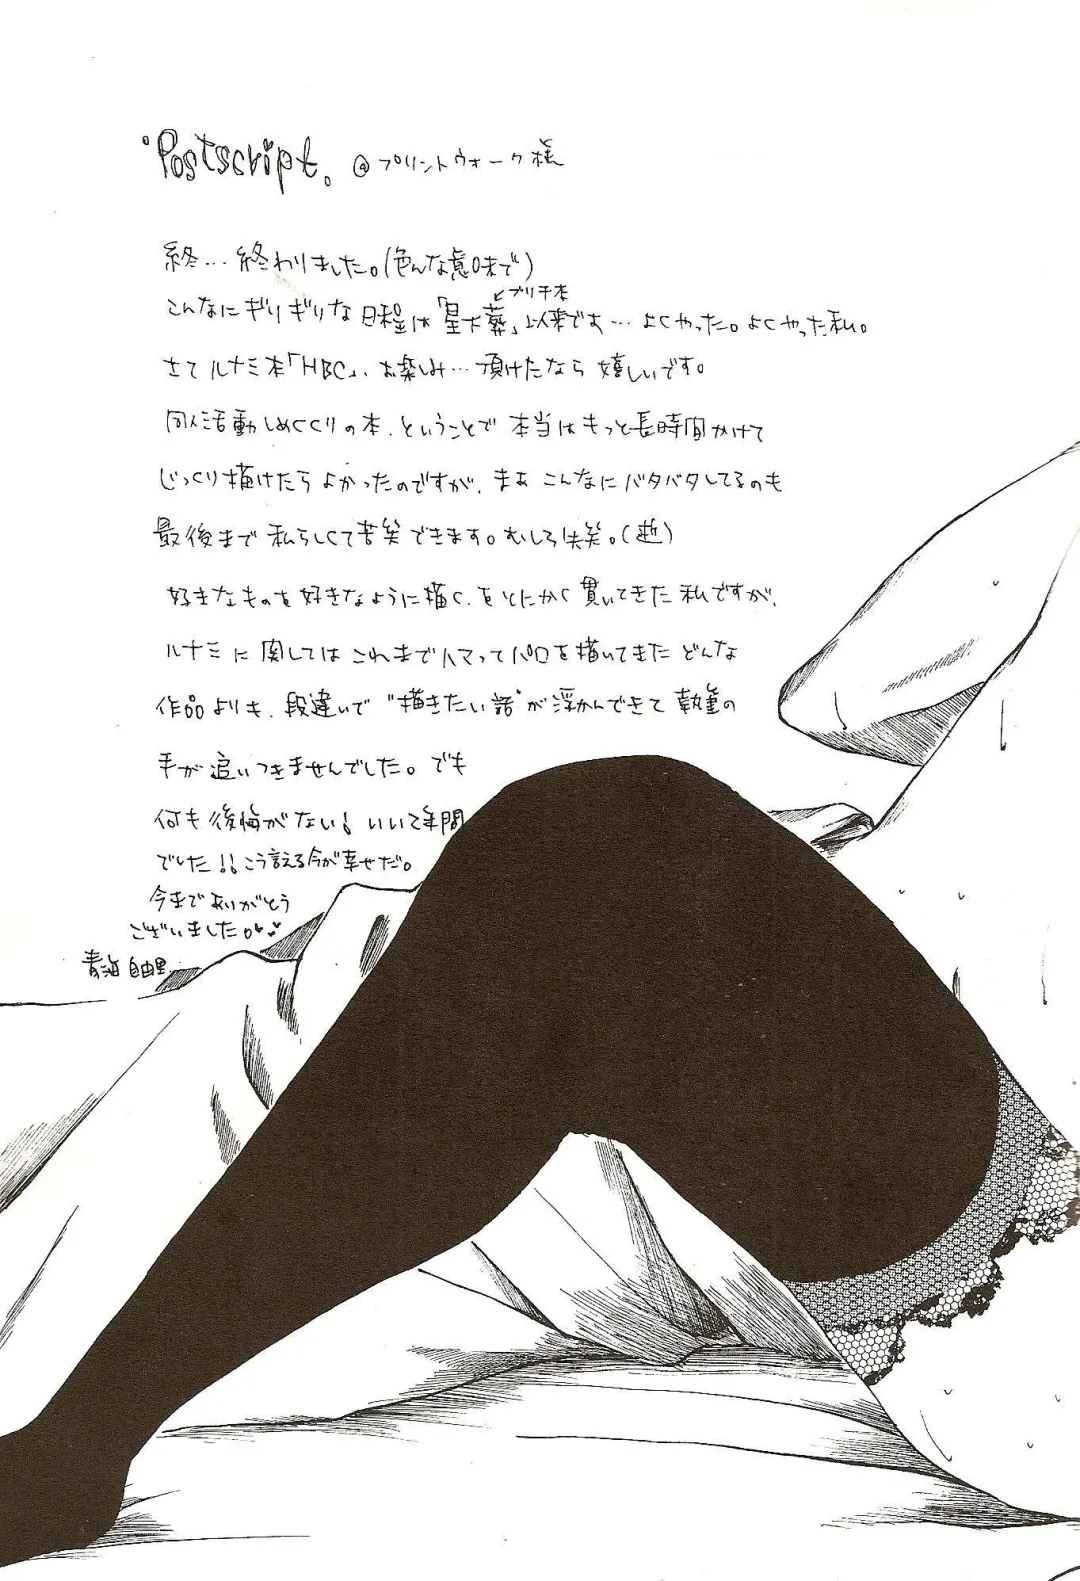 Postscript. @プリントウォーク様
終…終わりました。(色んな意味で)
↙ブリチ本
こんなにギリギリな日程は「星大葬」以来です…よくやった。よくやった私。
さてルナミ本「HBC」、お楽しみ…頂けたなら嬉しいです。
同人活動しめくくりの本、ということで本当はもっと長時間かけて
じっくり描けたらよかったのですが、まあこんなにバタバタしてるのも
最後まで私らしくて苦笑できます。むしろ失笑。(逝)
好きなものを好きなように描く、をとにかく貫いてきた私ですが、
ルナミに関してはこれまでハマってパロを描いてきたどんな
作品よりも、段違いで"描きたい話"が浮かんできて執筆の
手が追いつきませんでした。でも
何も後悔がない!いい2年間
でした!!こう言える今が幸せだ。
今までありがとう
ございました。
青海 自由里